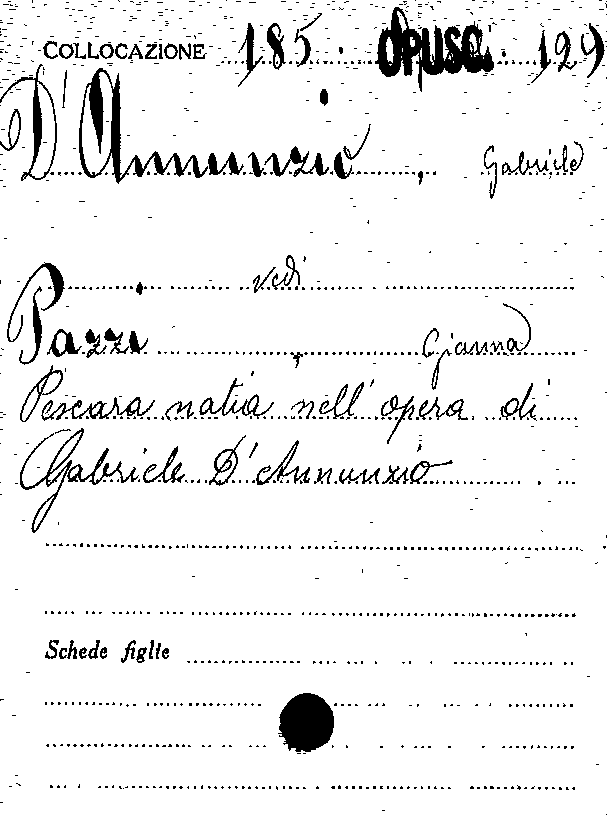 COLLOCAZIONE 185. OPUSC. 129
D'Annunzio, Gabriele
vedi
Pazzi, Gianna
Pescara natia nell'opera di
Gabriele D'Annunzio
Schede figlie